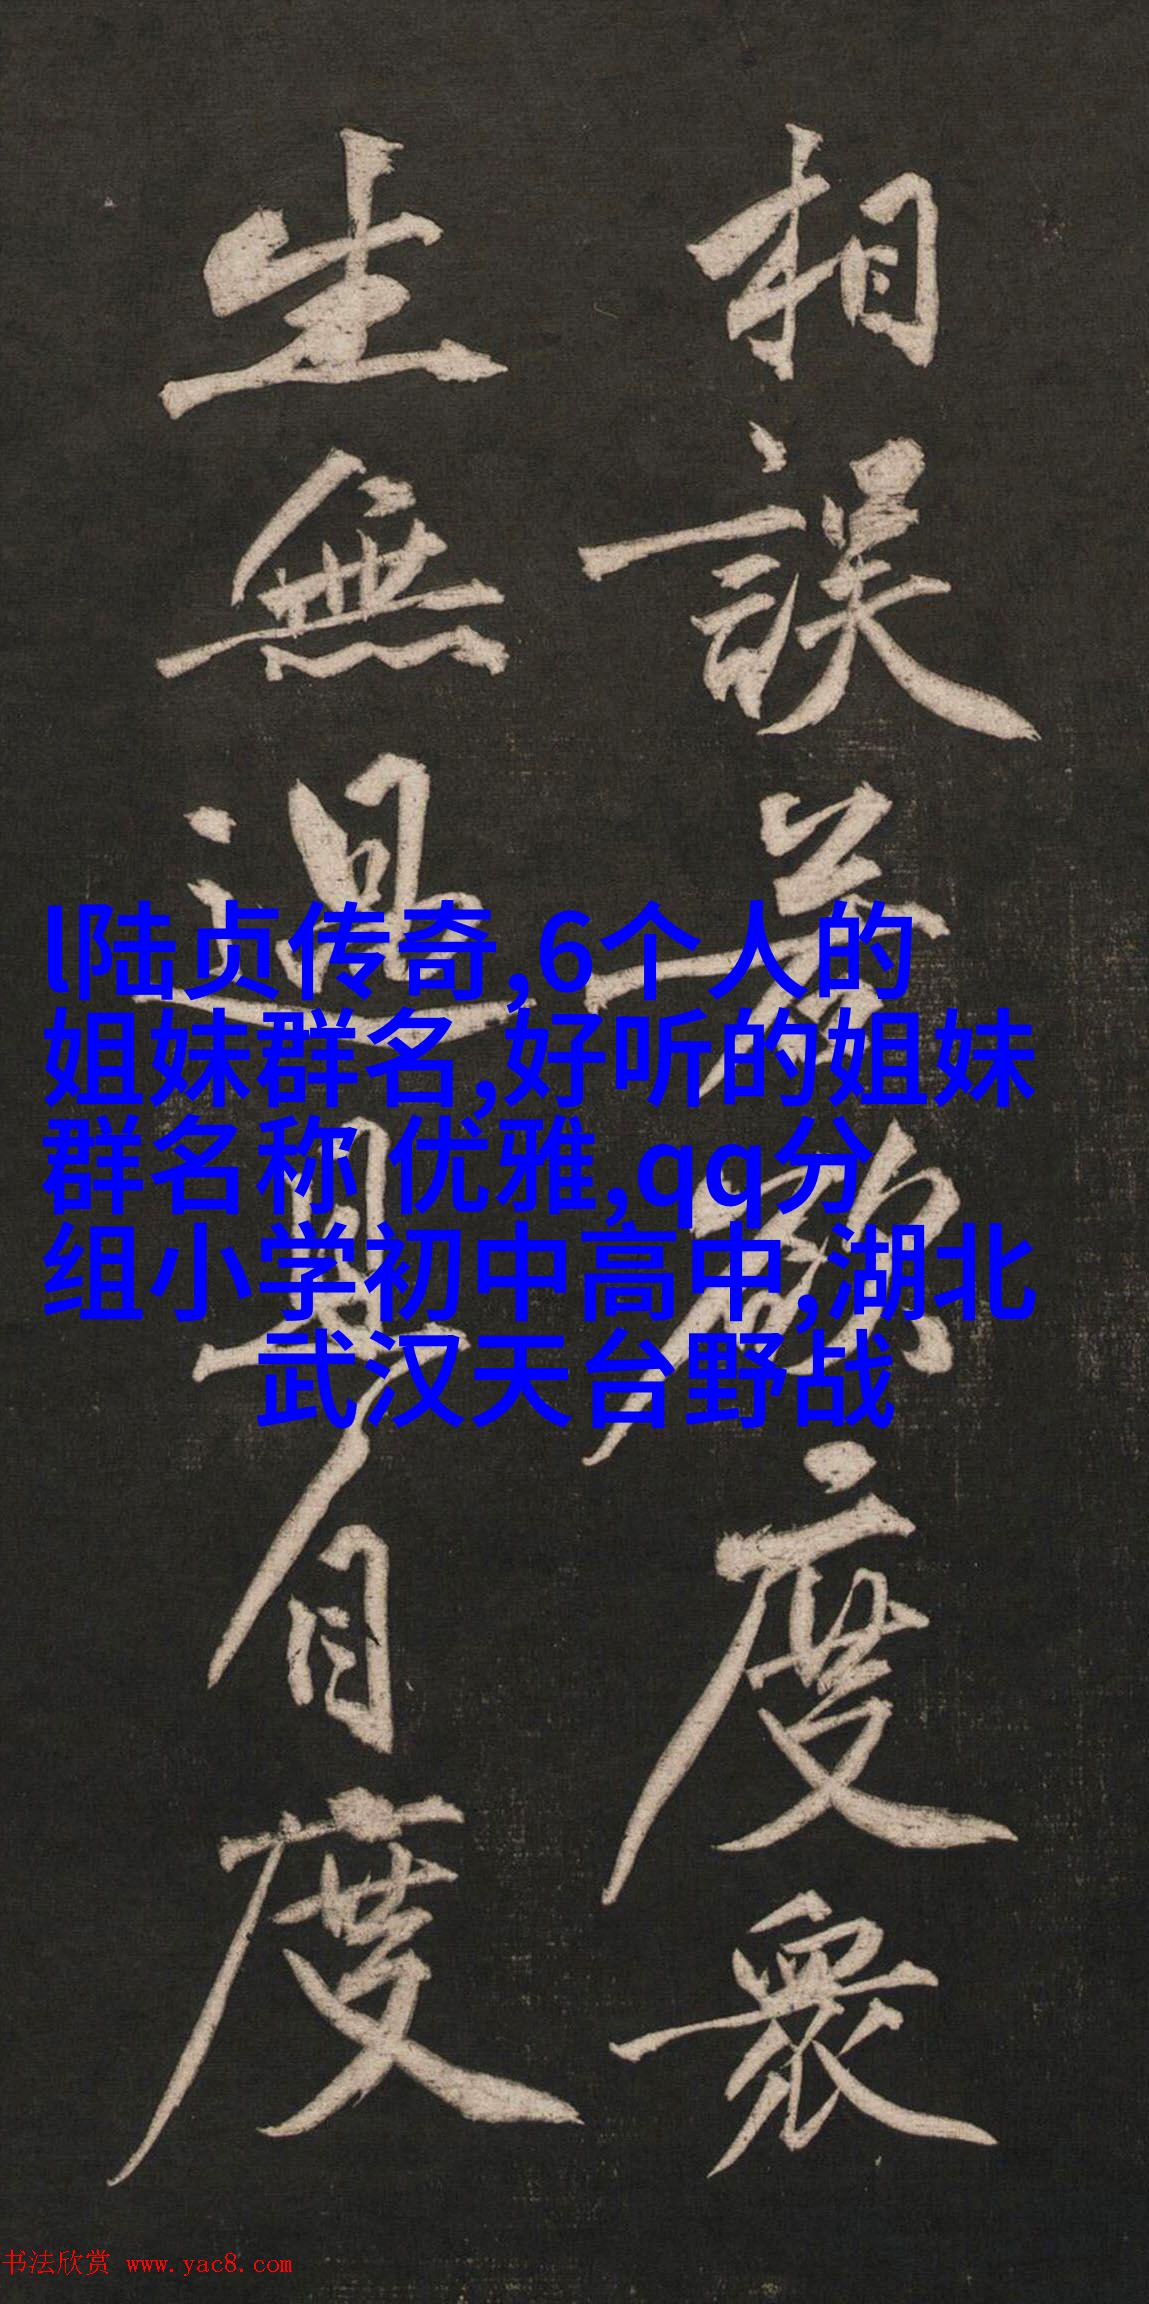 相誤若欲度衆
生無過且自度
l陆贞传奇,6个人的
姐妹群名,好听的姐妹
群名称 优雅,qq分
组小学初中高中,湖北
武汉天台野战
书法欣赏 www.yac8.com